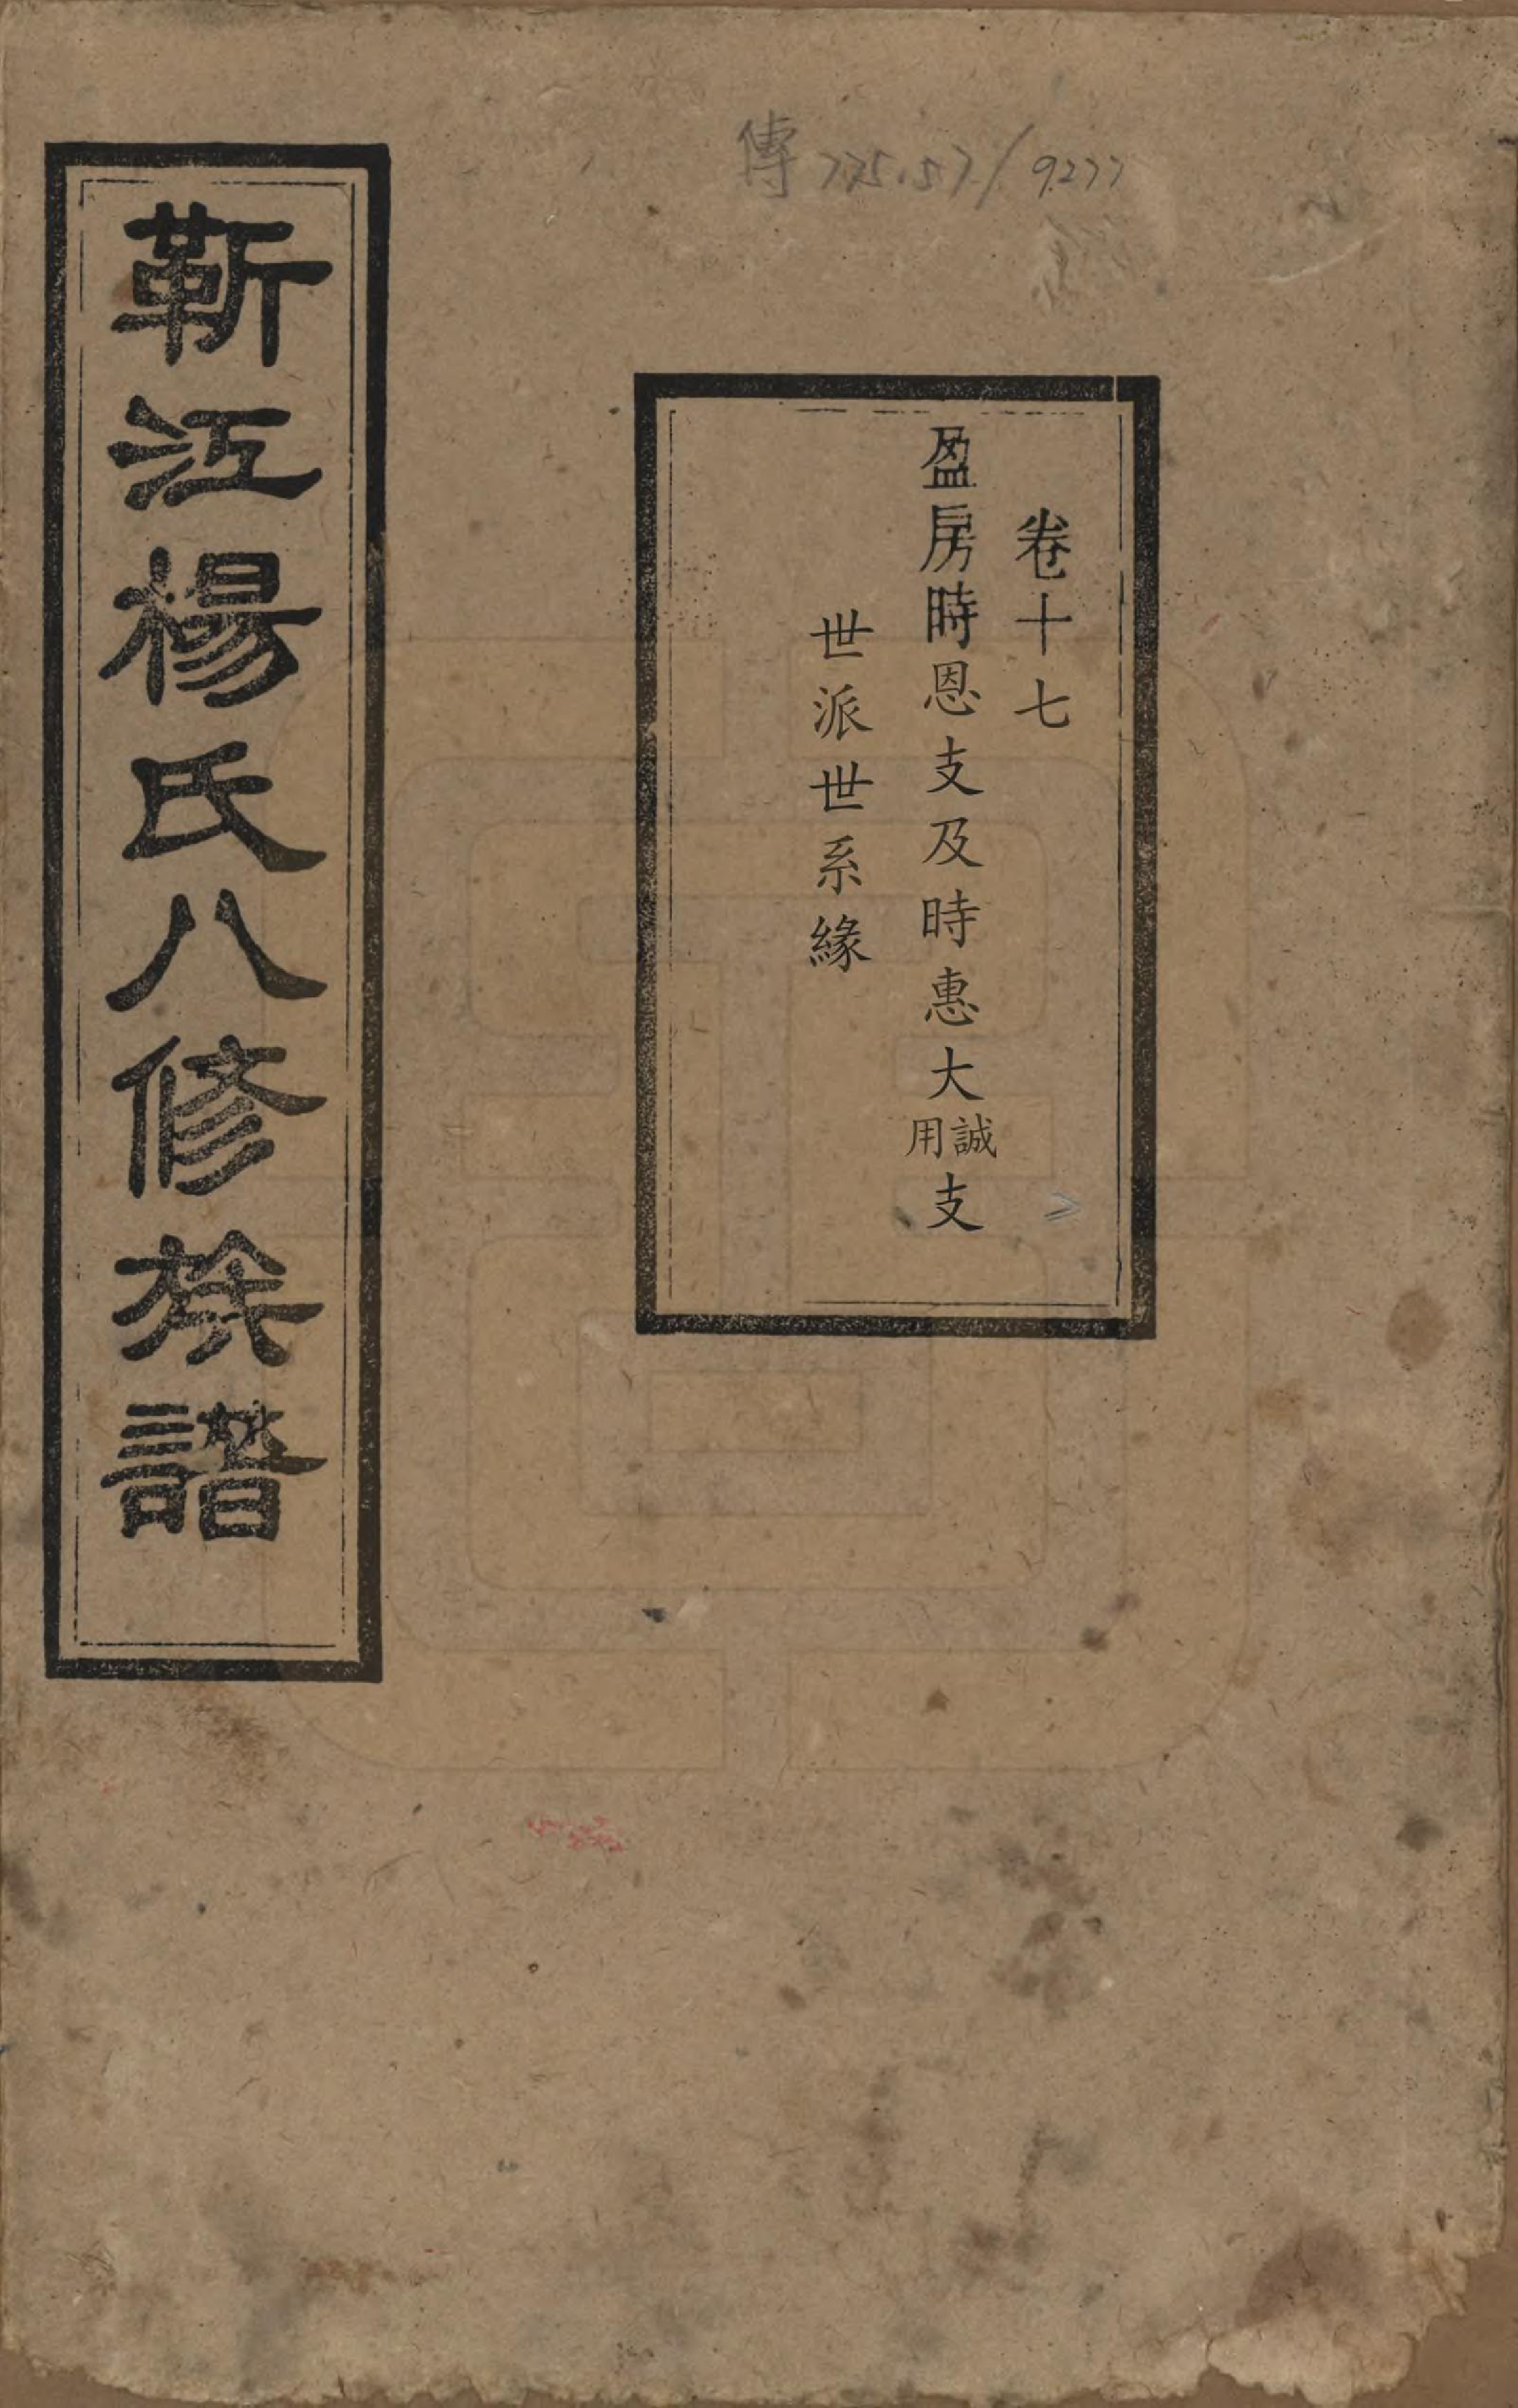 傳 775.57/9277
卷十七
盈房時恩支及時惠大誠用支
世派世系緣
靳江楊氏八修族譜